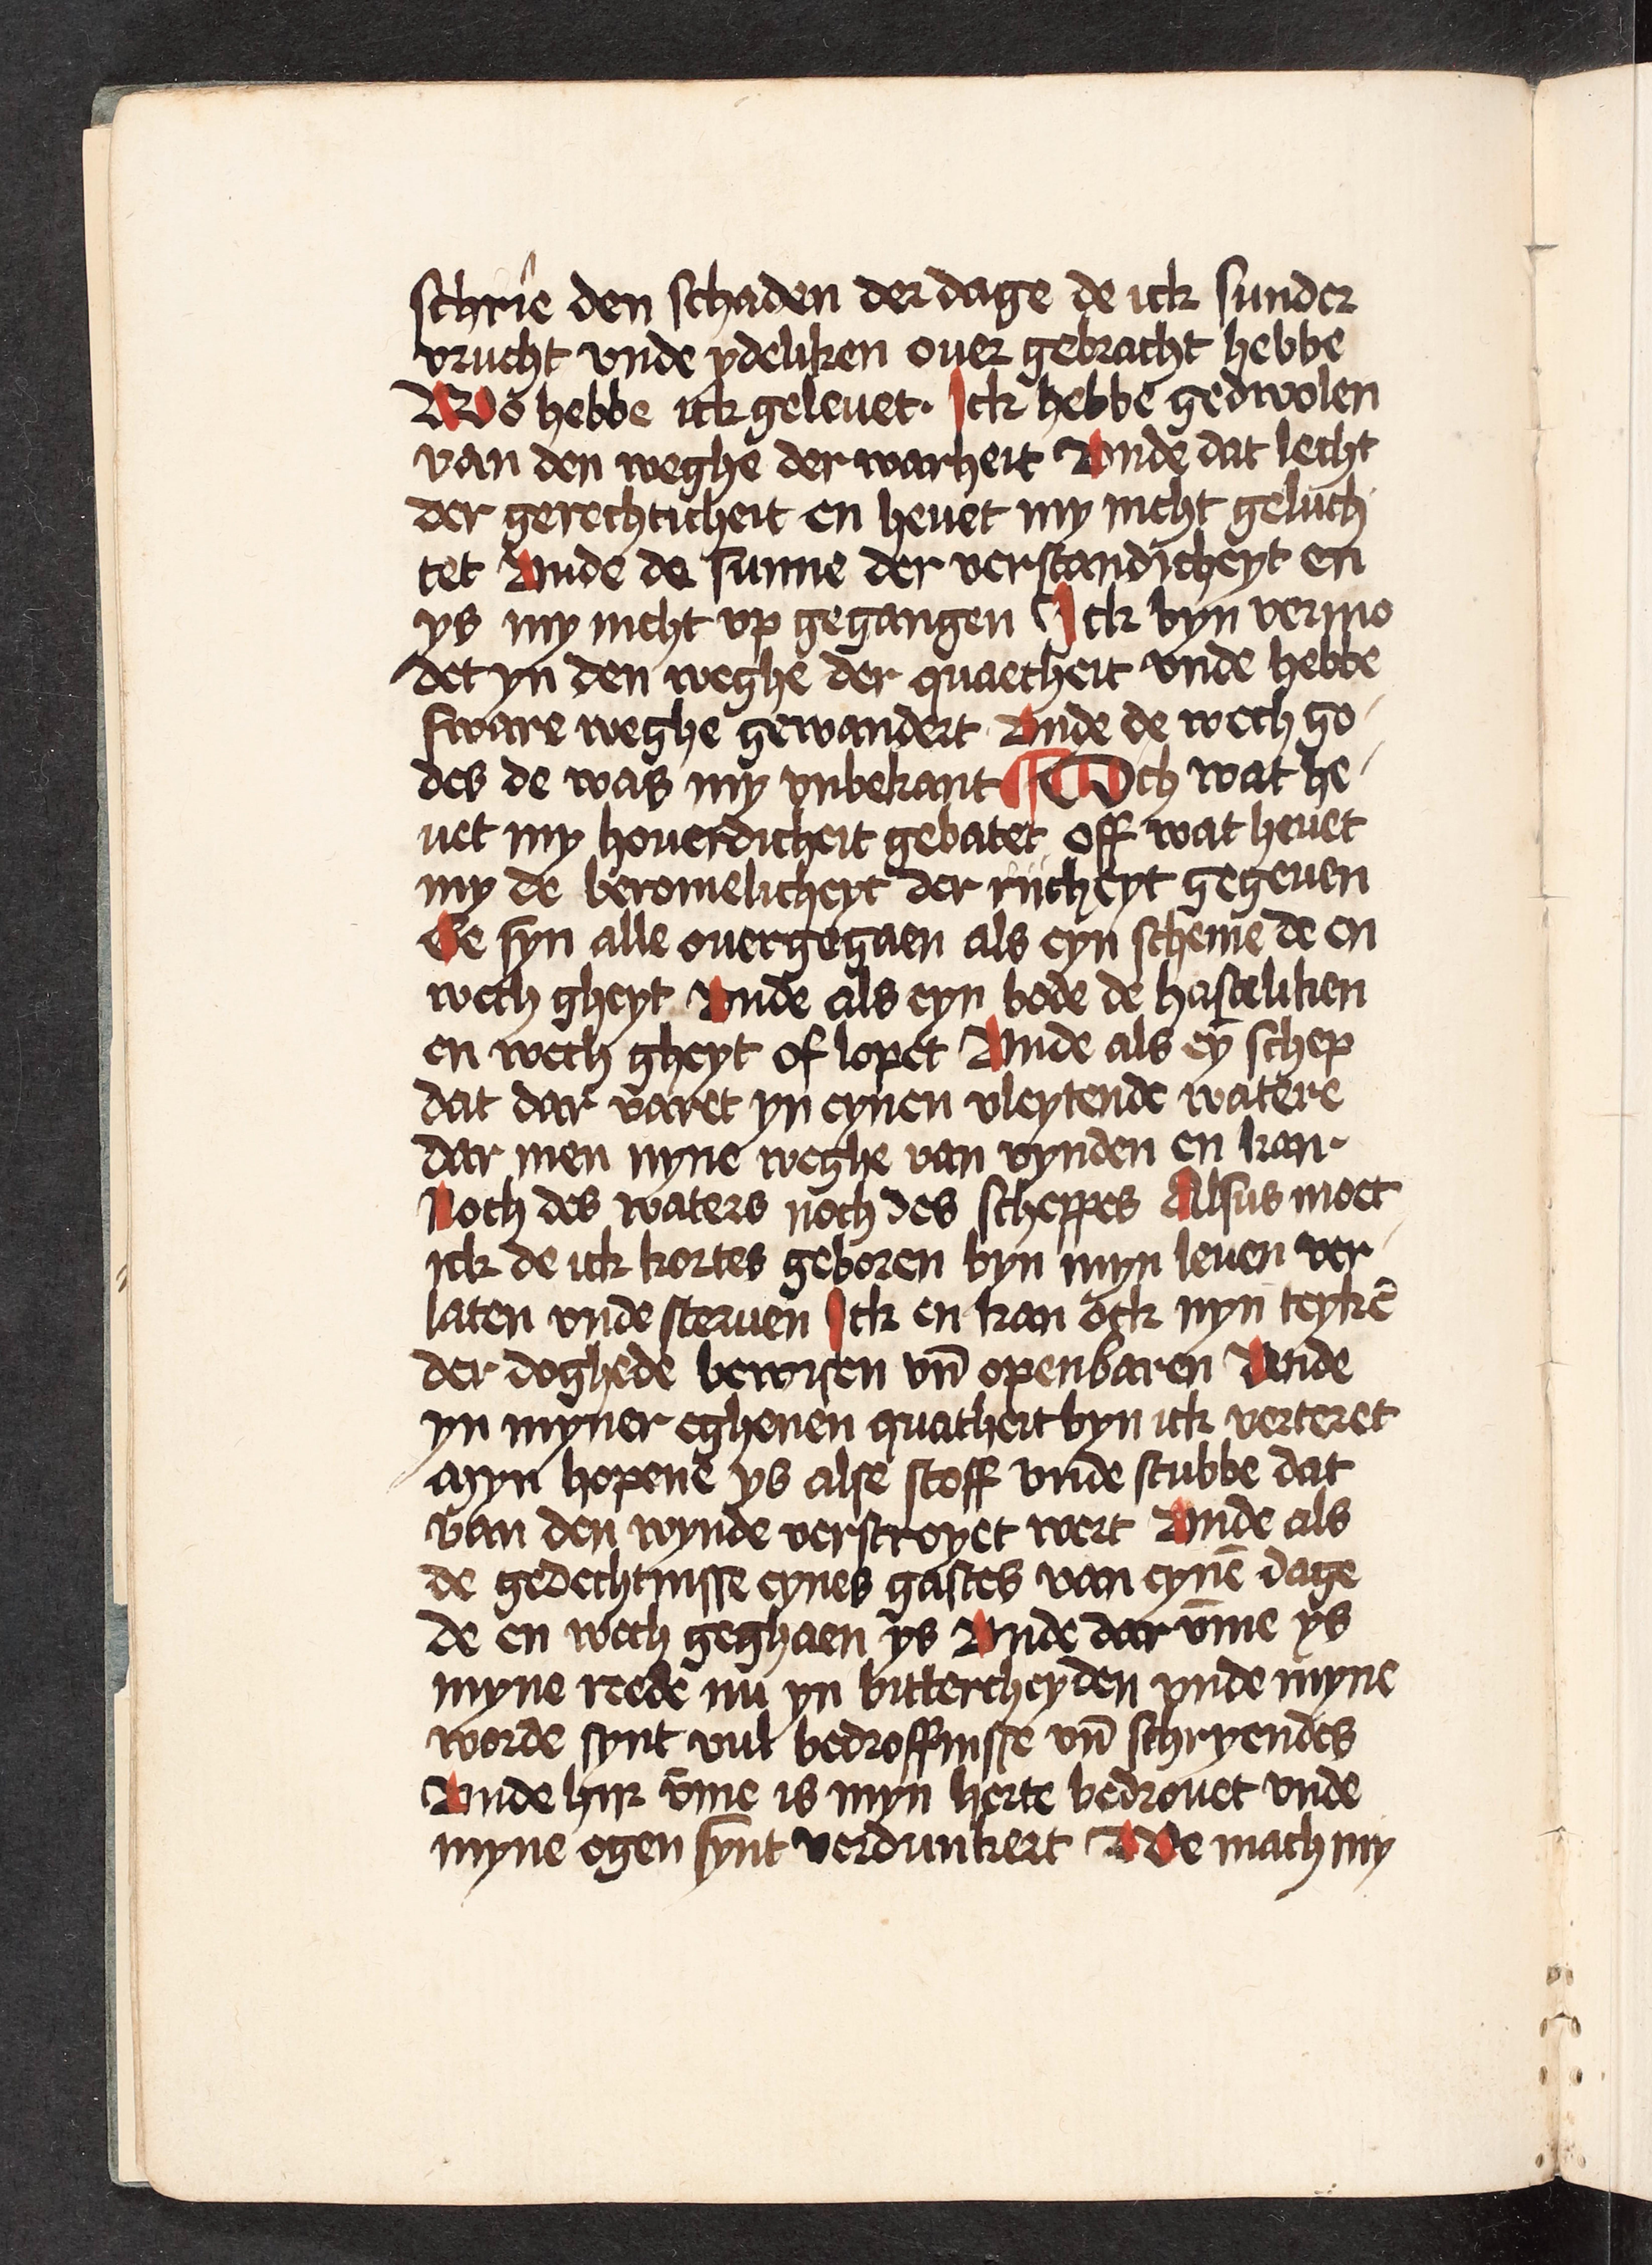 schrie den schaden der dage de ick sunder
vrucht vnde ydeliken ouer gebracht hebbe
Wo hebbe ick geleuet. Ick hebbe gedwolen
van den weghe der warheit Vnde dat lecht
der gerechticheit en heuet my nicht geluch
tet Vnde de sunne der verstandicheyt en
ys my nicht vp gegangen Ick byn vermo
det yn den weghe der quaetheit vnde hebbe
sware weghe gewandert Vnde de wech go
des de was my vnbekant ¶ Och wat he
uet my houerdicheit gebatet off wat heuet
my de beromelicheyt der riicheyt gegeuen
Se syn alle ouergegaen als eyn scheme de en
wech gheyt Vnde als eyn bode de hasteliken
en wech gheyt of lopet Vnde als ey̅ schep
dat dar varet yn eynen vleytende watere
dar men nyne weghe van vynden en kan.
Noch des waters noch des scheppes Alsus moet
ick de ick kortes geboren byn myn leuen ver
laten vnde steruen Ick en kan ock nyn teyke̅
der doghede bewisen vn̅ openbaren Vnde
yn myner eghenen quatheit byn ick verteret
Myn hopene ys alse stoff vnde stubbe dat
van den wynde verstroyet wert Vnde als
de gedechtnisse eynes gastes van eyne̅ dage
de en wech geghaen ys Vnde dar v̅me ys
myne reede nu yn bittercheyden vnde myne
worde synt vul bedroffnisse vn̅ schryendes
Vnde hiir v̅me is myn herte bedrouet vnde
myne ogen synt verdunkert We mach my